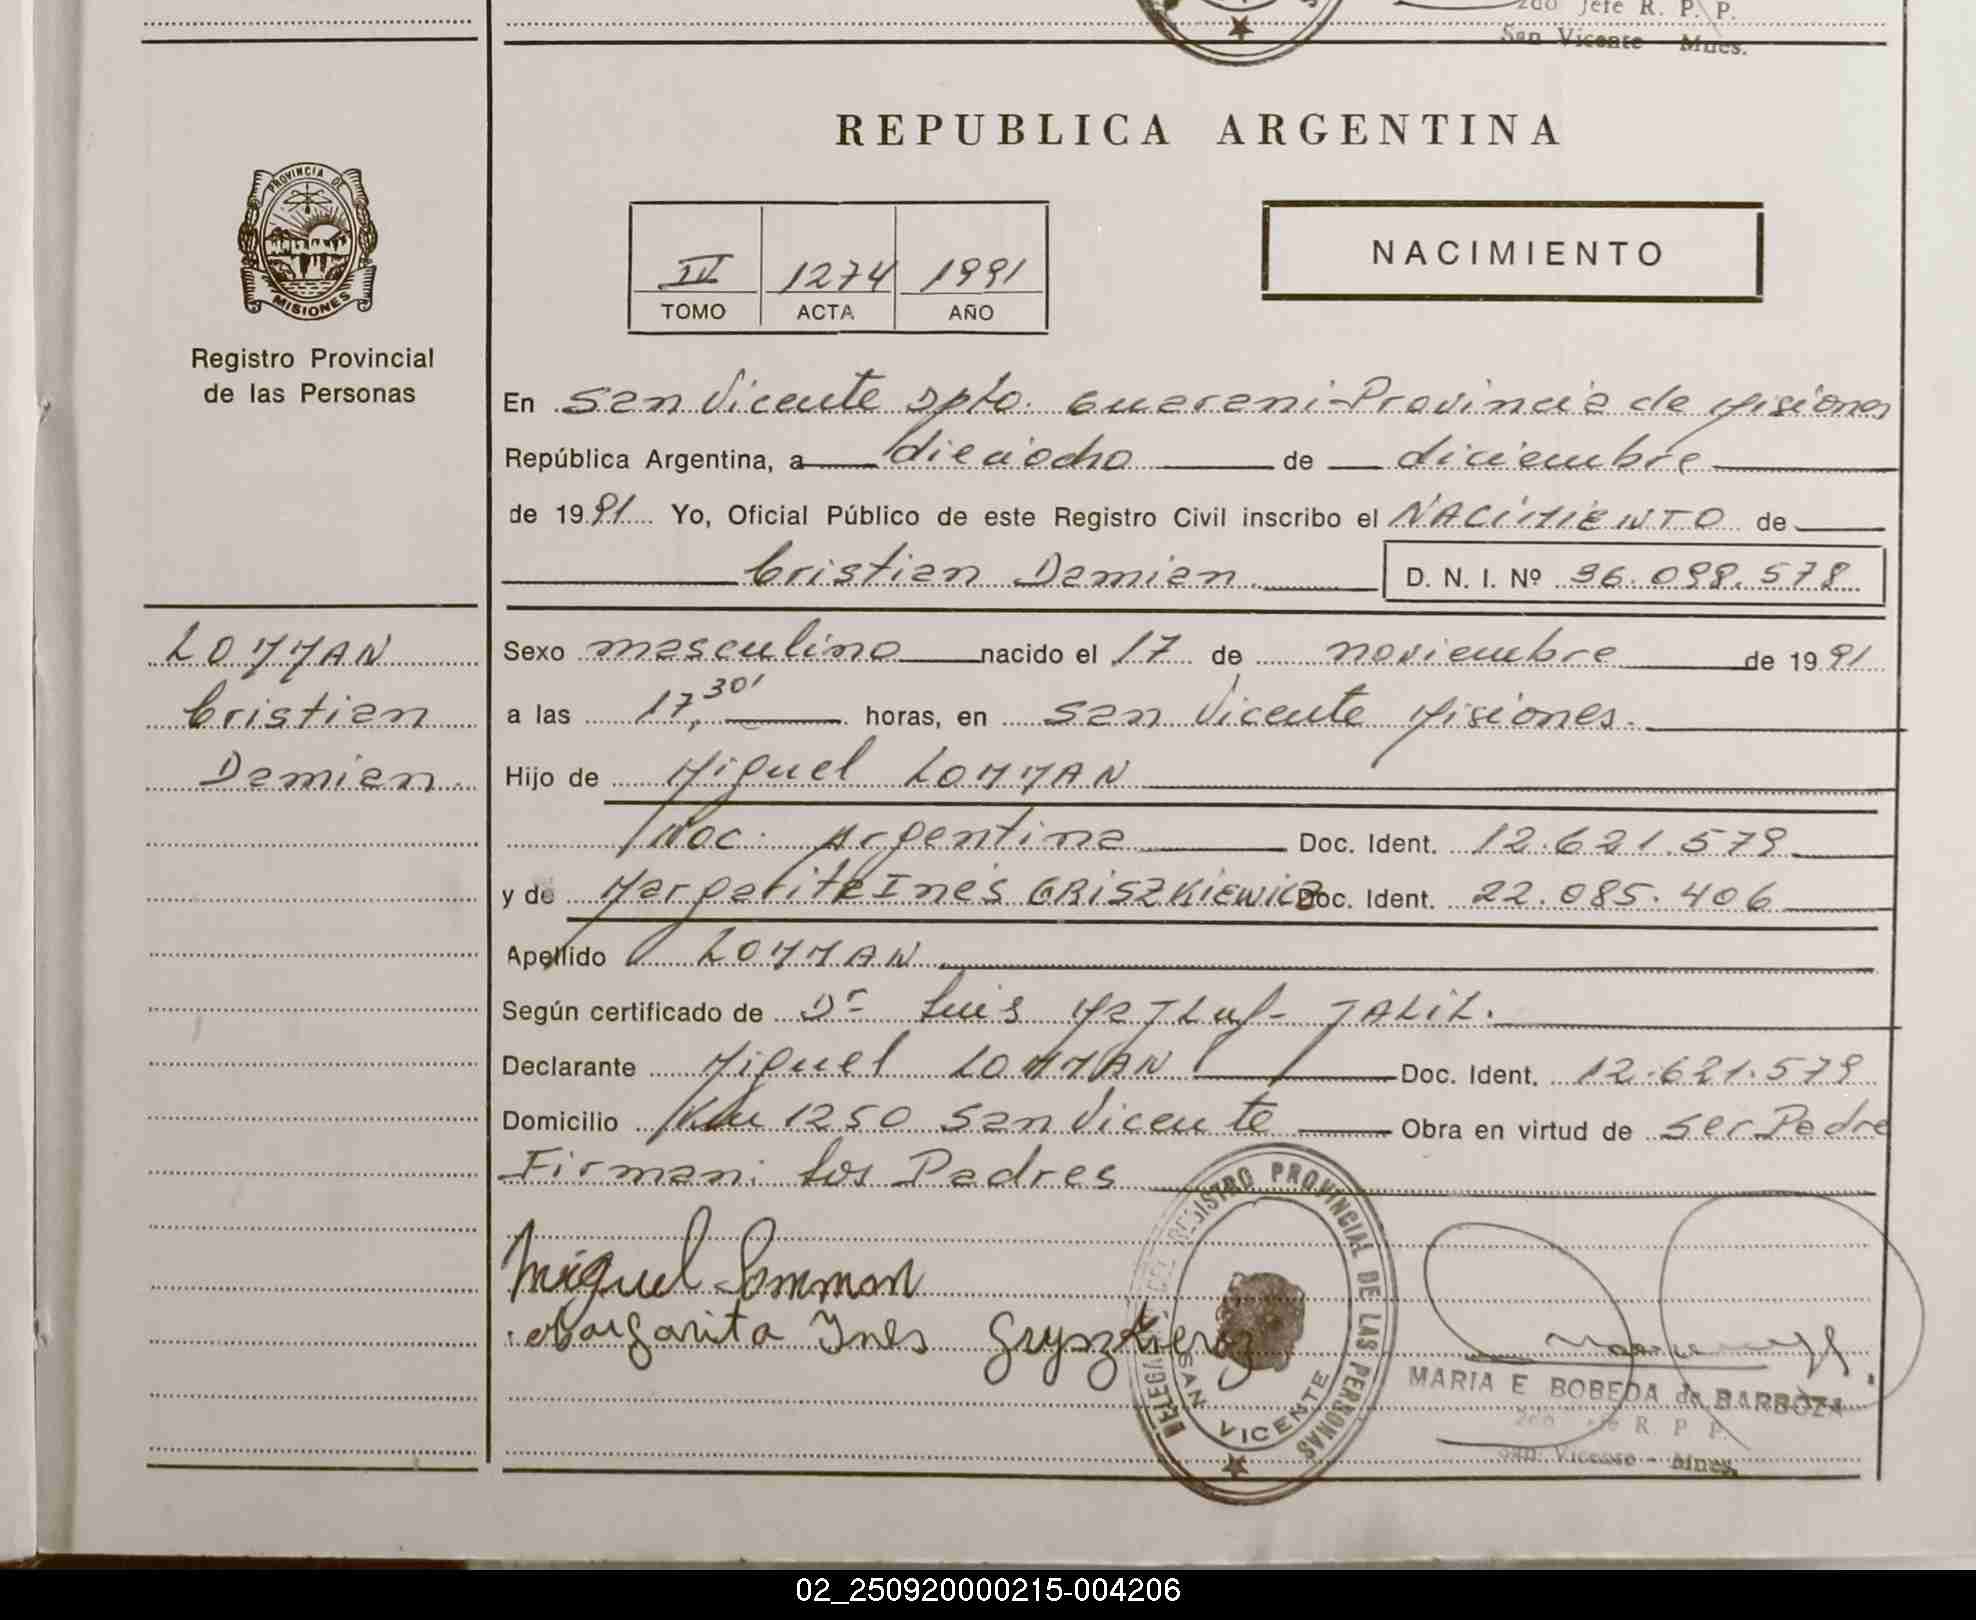 2do Jefe R. P. P.
San Vicente Mnes.
REPUBLICA ARGENTINA
PROVINCIA DE
MISIONES
Registro Provincial
de las Personas
IV 1274 1991
TOMO ACTA AÑO
NACIMIENTO
En San Vicente Dpto. Guarani-Provincia de Misiones
República Argentina, a dieciocho de diciembre
de 1991 Yo, Oficial Público de este Registro Civil inscribo el NACIMIENTO de
Cristian Damian D. N. I. Nº 36.098.578
LOMMAN
Cristian
Damian.
Sexo masculino nacido el 17 de noviembre de 1991
a las 17,30' horas, en San Vicente Misiones.
Hijo de Miguel LOMMAN
Nac. Argentina Doc. Ident. 12.621.579
y de Margarita Inés GRISZKIEWICZ Doc. Ident. 22.085.406
Apellido LOMMAN
Según certificado de Dr Luis JALIL.
Declarante Miguel LOMMAN Doc. Ident. 12.621.579
Domicilio Km 1250 San Vicente Obra en virtud de ser Padre
Firman: los Padres
Miguel Lomman
Margarita Ines
DELEGACION DEL REGISTRO PROVINCIAL DE LAS PERSONAS
SAN VICENTE
MARIA E BOBEDA de BARBOZA
2do Jefe R. P. P.
San Vicente - Mnes.
02_250920000215-004206